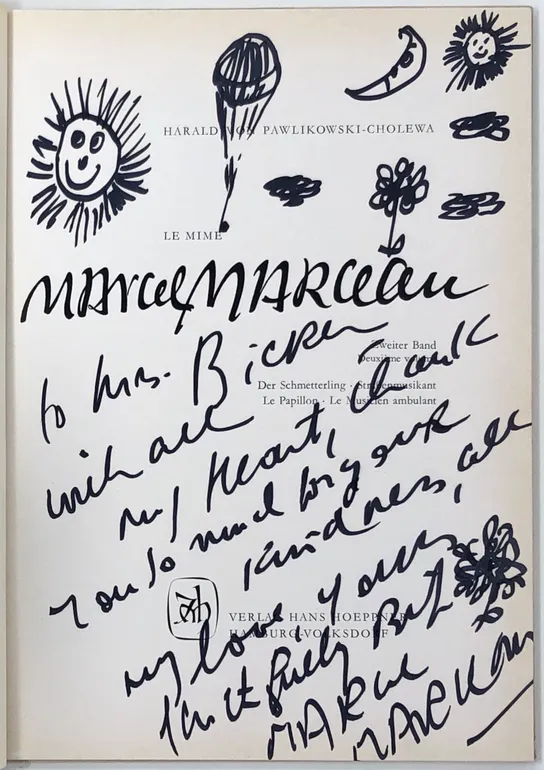 HARALD VON PAWLIKOWSKI-CHOLEWA
LE MIME
MARCEL MARCEAU
Zweiter Band
Deuxième volume
to Mrs. Bicker
Der Schmetterling · Straßenmusikant
Le Papillon · Le Musicien ambulant
with all
my Heart, thank
you so much for your
kindness, all
my love yours
VERLAG HANS HOEPPNER
HAMBURG-VOLKSDORF
faithfully
MARCEL
MARCEAU